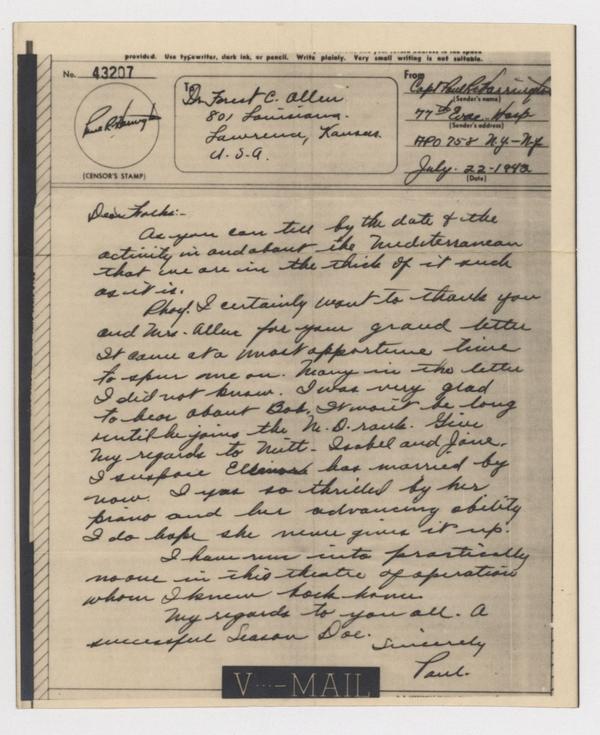 provided. Use typewriter, dark ink, or pencil. Write plainly. Very small writing is not suitable.
No. 43207
Paul R. Harrington
(CENSOR'S STAMP)
To
Dr Forest C. Allen
801 Louisiana.
Lawrence, Kansas.
U.S.A.
From
Capt Paul R. Harrington
(Sender's name)
77th Evac. Hosp
(Sender's address)
APO 758 N.Y-N.Y
July. 22-1943
(Date)
Dear Folks:-
As you can tell by the date & the
activity in and about the Mediterranean
that we are in the thick of it such
as it is.
Phog. I certainly want to thank you
and Mrs. Allen for your grand letter
It came at a most opportune time
to spur me on. Many in the letter
I did not know. I was very glad
to hear about Bob. It won't be long
until he joins the M.D. rank. Give
my regards to Mitt - Isabel and Jane.
I suspose Elleanor has married by
now. I was so thrilled by her
piano and her advancing ability
I do hope she never gives it up.
I have run into practically
no one in this theatre of operation
whom I knew back home.
My regards to you all. A
successful Season Doc.
Sincerely
Paul.
V···-MAIL